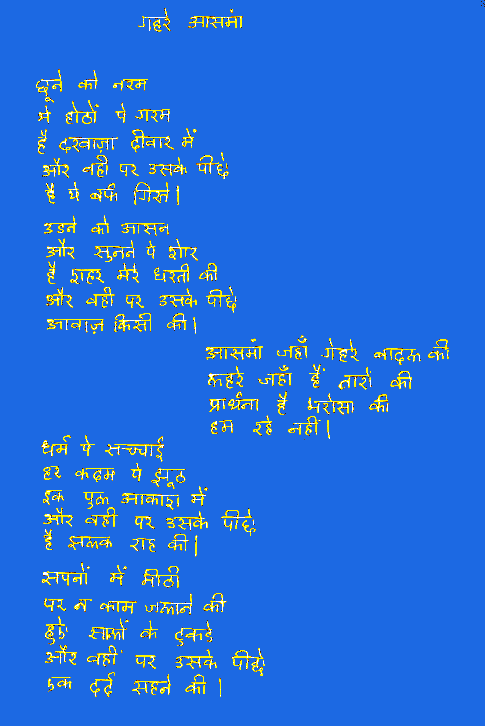 गहरे आसमां
छूने को नरम
मे होठों पे गरम
है दरवाज़ा दीवार में
और वही पर उसके पीछे
है ये बर्फ गिरते।
उडने को आसन
और सुनने पे शोर
है शहर मेरे धरती की
और वही पर उसके पीछे
आवाज़ किसी की।
आसमां जहाँ गेहरे बादल की
लहरे जहाँ हैं तारों की
प्रार्थना है भरोसा की
हम रहे नहीं।
धर्म पे सच्चाई
हर कदम पे झूठ
इक पुल आकाश में
और वही पर उसके पीछे
है झलक राह की।
सपनों में मीठी
पर न काम जलाने की
सालों के टुकडे
और वहीं पर उसके पीछे
एक दर्द सहने की।